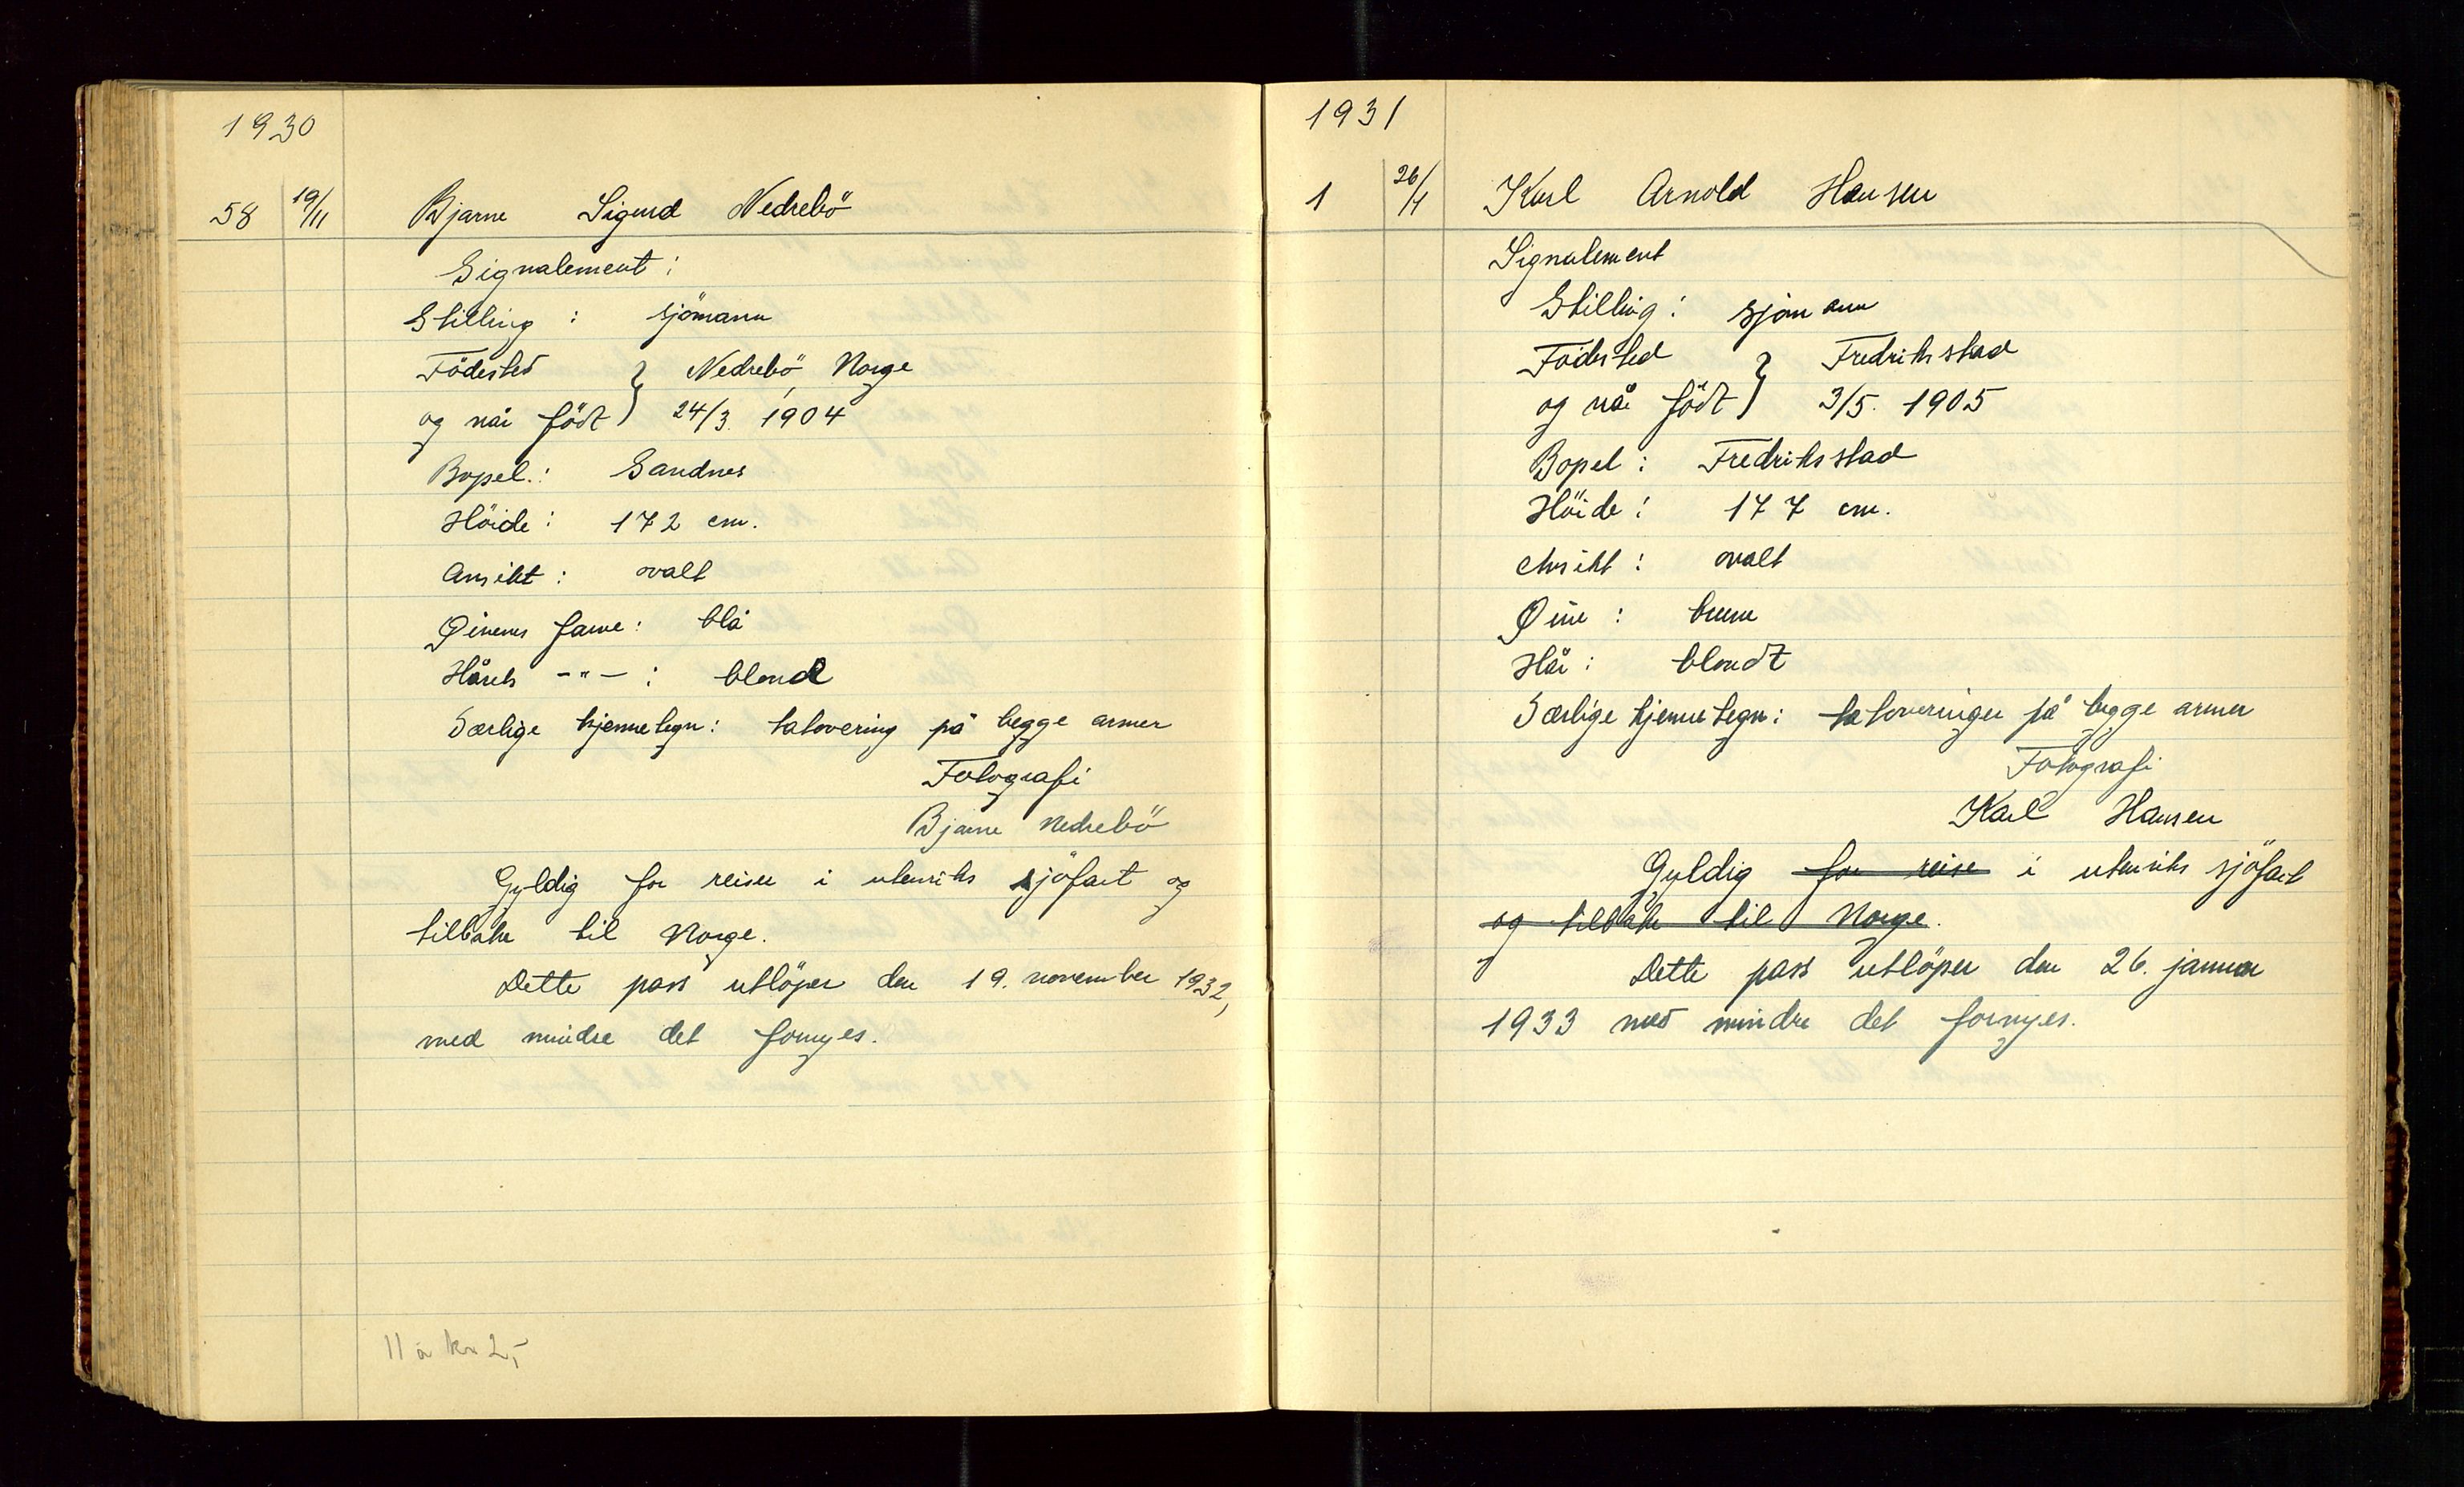 1930
58 19/11 Bjarne Sigurd Nedrebö
Signalement:
Stilling : sjömann
Födested } Nedrebö, Norge
og når födt } 24/3. 1904
Bopel.: Sandnes
Höide: 172 cm.
Ansikt: ovalt
Øinenes farve: blå
Hårets -"- : blond
Særlige kjennetegn: tatovering på begge armer
Fotografi
Bjarne Nedrebö
Gyldig for reiser i utenriks sjöfart og
tilbake til Norge.
Dette pass utlöper den 19. november 1932,
med mindre det fornyes.
11 à kr 2,-
1931
1 26/1 Karl Arnold Hansen
Signalement
Stilling: sjömann
Födested } Fredriksstad
og når födt } 3/5. 1905
Bopel: Fredriksstad
Höide: 177 cm.
Ansikt: ovalt
Øine: brune
Hår: blondt
Særlige kjennetegn: tatoveringer på begge armer
Fotografi
Karl Hansen
Gyldig for reise i utenriks sjöfart
og tilbake til Norge.
Dette pass utlöper den 26. januar
1933 med mindre det fornyes.